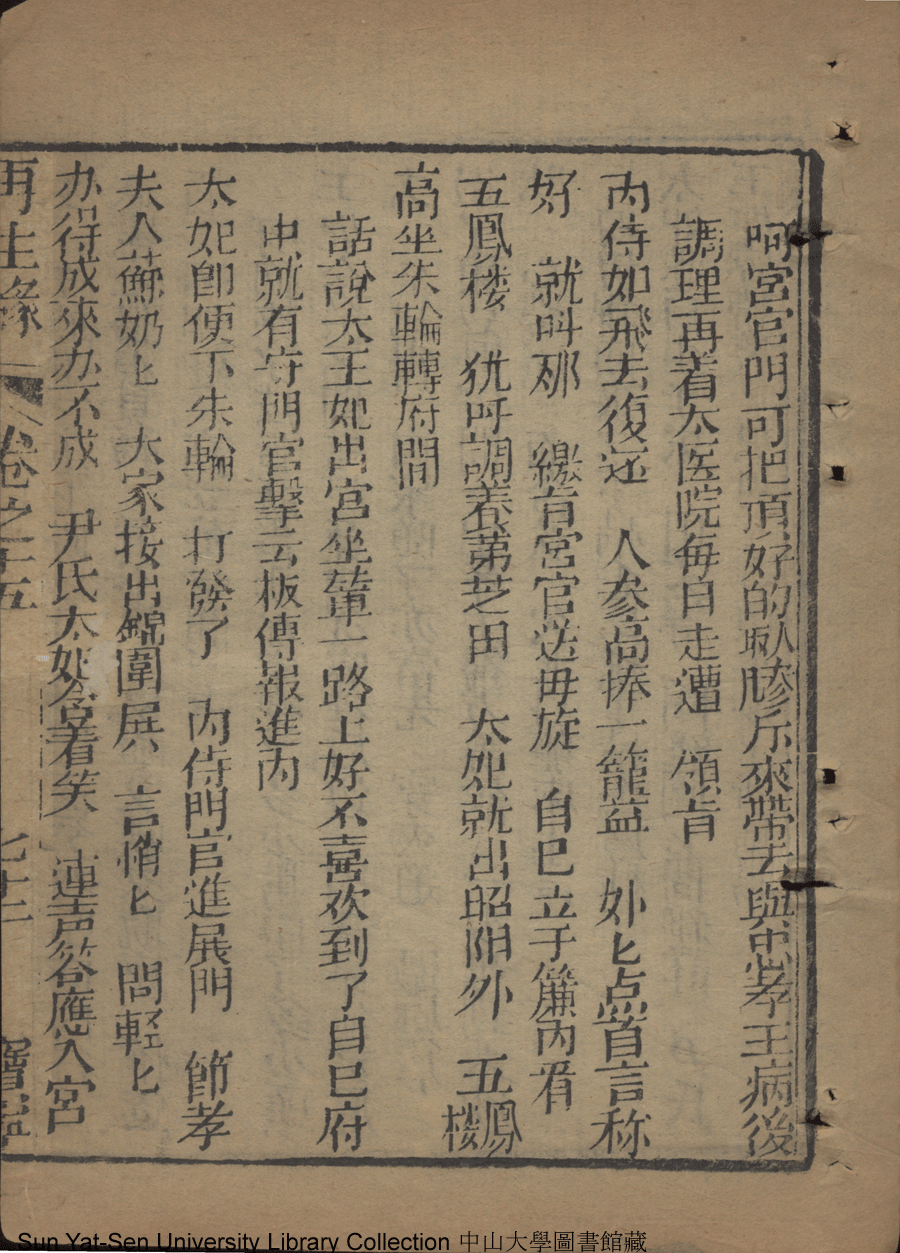 呵宮官門可把頂好的㕘十斤來帶去與忠孝王病後
調理再着太医院每日走遭　領旨
內侍如飛去復还　人參高捧一籠益　外匕点首言称
好　就叫那　繳旨宮官送毋旋　自已立于簾內看
五鳳楼　犹呼調养蕚芝田　太妃就出昭阳外　五鳳楼
高坐朱輪轉府間
話說太王妃出宮坐輦一路上好不喜欢到了自已府
中就有守門官擊云板傳報進內
太妃卽便下朱輪　打發了　內侍門官進展門　節孝
夫人蘇奶匕　大家接出錦圍屏　言悄匕　問輕匕
办得成來办不成　尹氏太妃含着笑　連声答應入宮
再生緣　卷之十五　七十二　寶寧
Sun Yat-Sen University Library Collection 中山大學圖書館藏